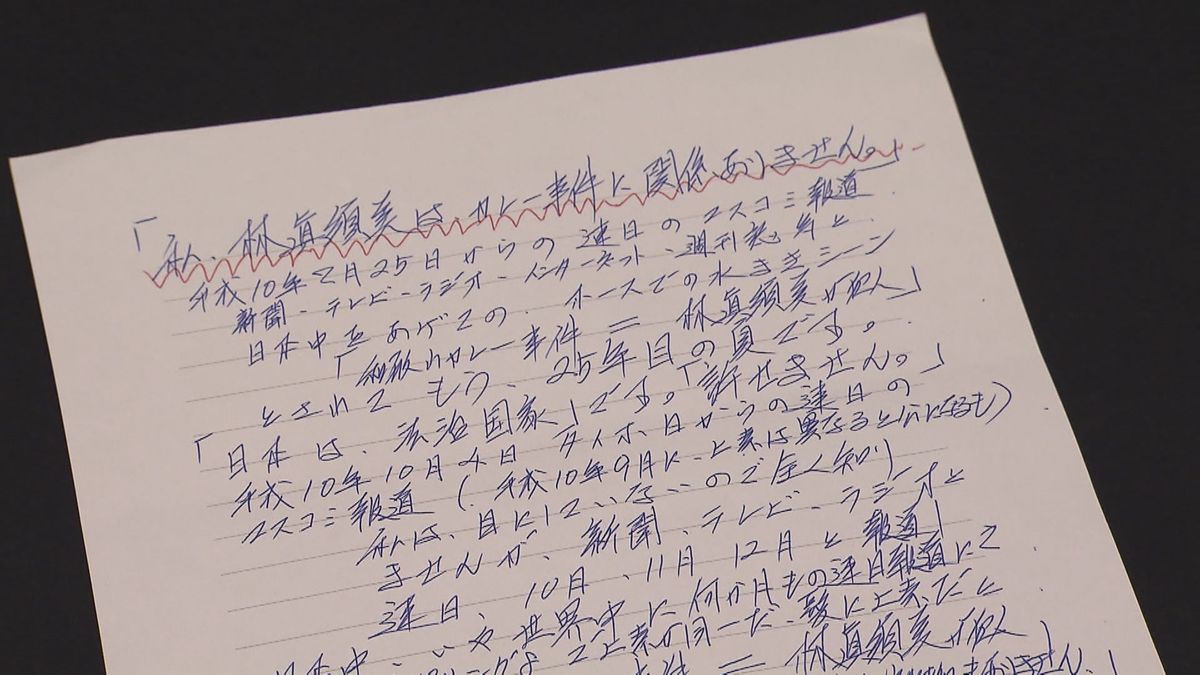 「私、林眞須美はカレー事件に関係ありません。」
平成10年7月25日からの連日のマスコミ報道
新聞・テレビ・ラジオ・インターネット・週刊誌 等と
日本中をあげての、ホースでの水まきシーン
「和歌山カレー事件 = 林眞須美が犯人」
とされて もう、25年目の夏です。
「日本は、法治国家」です。「許せません。」
平成10年10月4日 タイホ日からの連日の
マスコミ報道(平成10年9月に、ヒ素は異なると公になるも)
私は、目にしていないので全く知り
ませんが、新聞、テレビ、ラジオと
連日、10月、11月 12月と報道」
日本中、いや世界中に何か月もの連日報道にて
ヒ素が同一だ、髪にヒ素だと
事件 = 林眞須美が犯人」
ありません。」